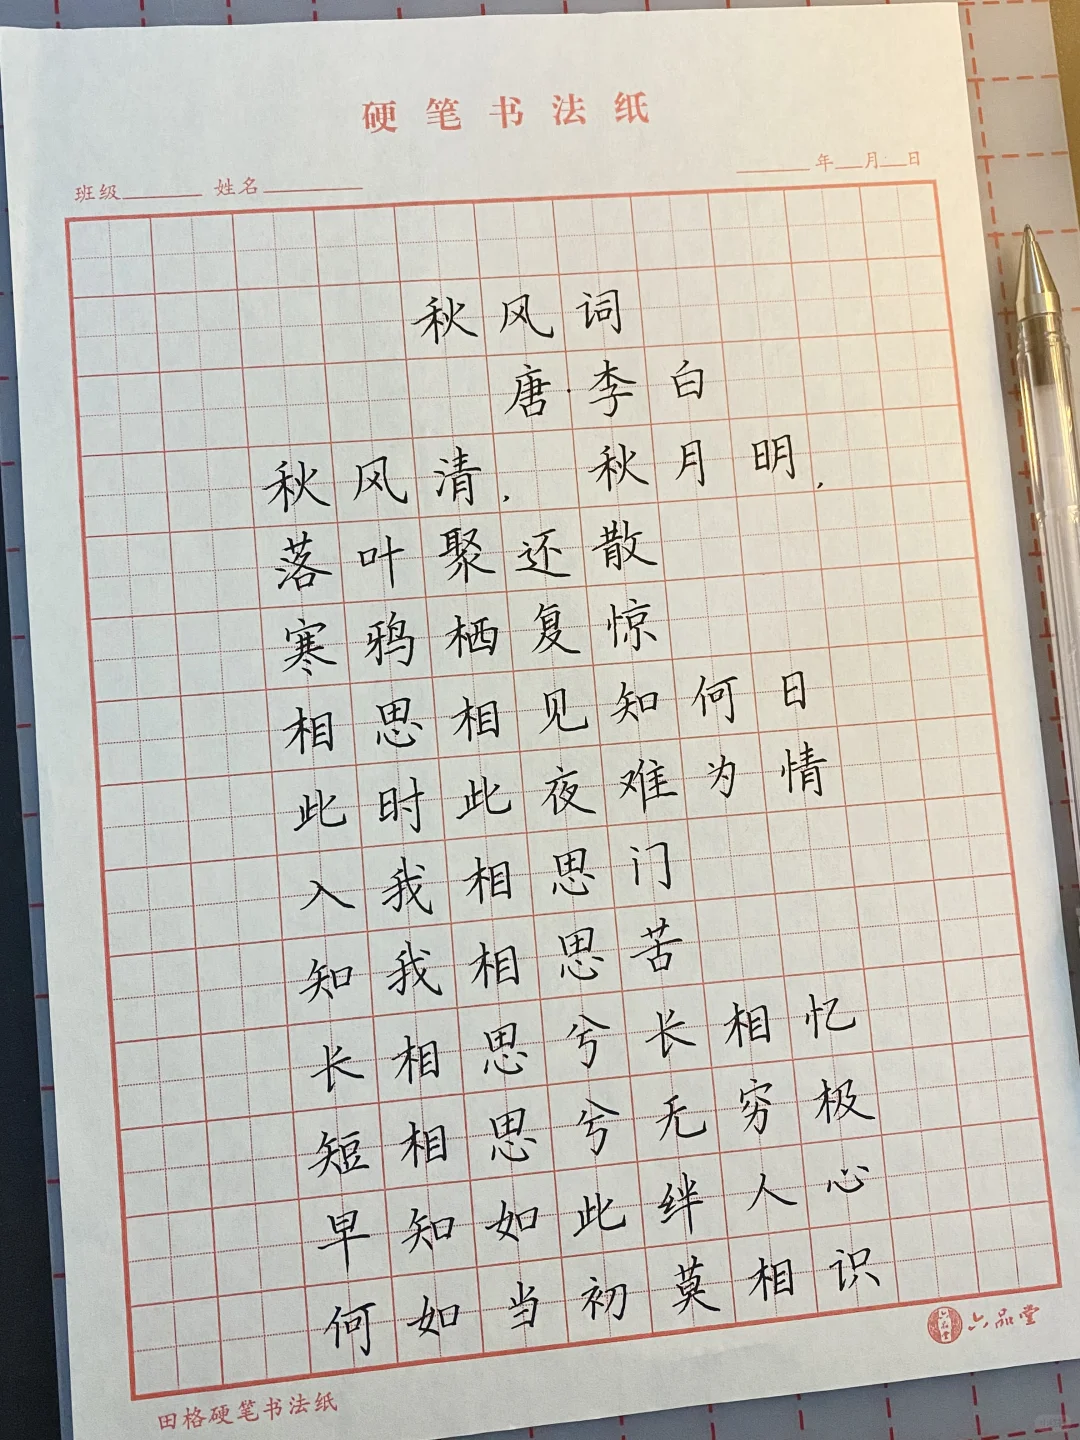 硬笔书法纸
班级 姓名 年 月 日
秋风词
唐·李白
秋风清，秋月明，
落叶聚还散
寒鸦栖复惊
相思相见知何日
此时此夜难为情
入我相思门
知我相思苦
长相思兮长相忆
短相思兮无穷极
早知如此绊人心
何如当初莫相识
六品堂 六品堂
田格硬笔书法纸